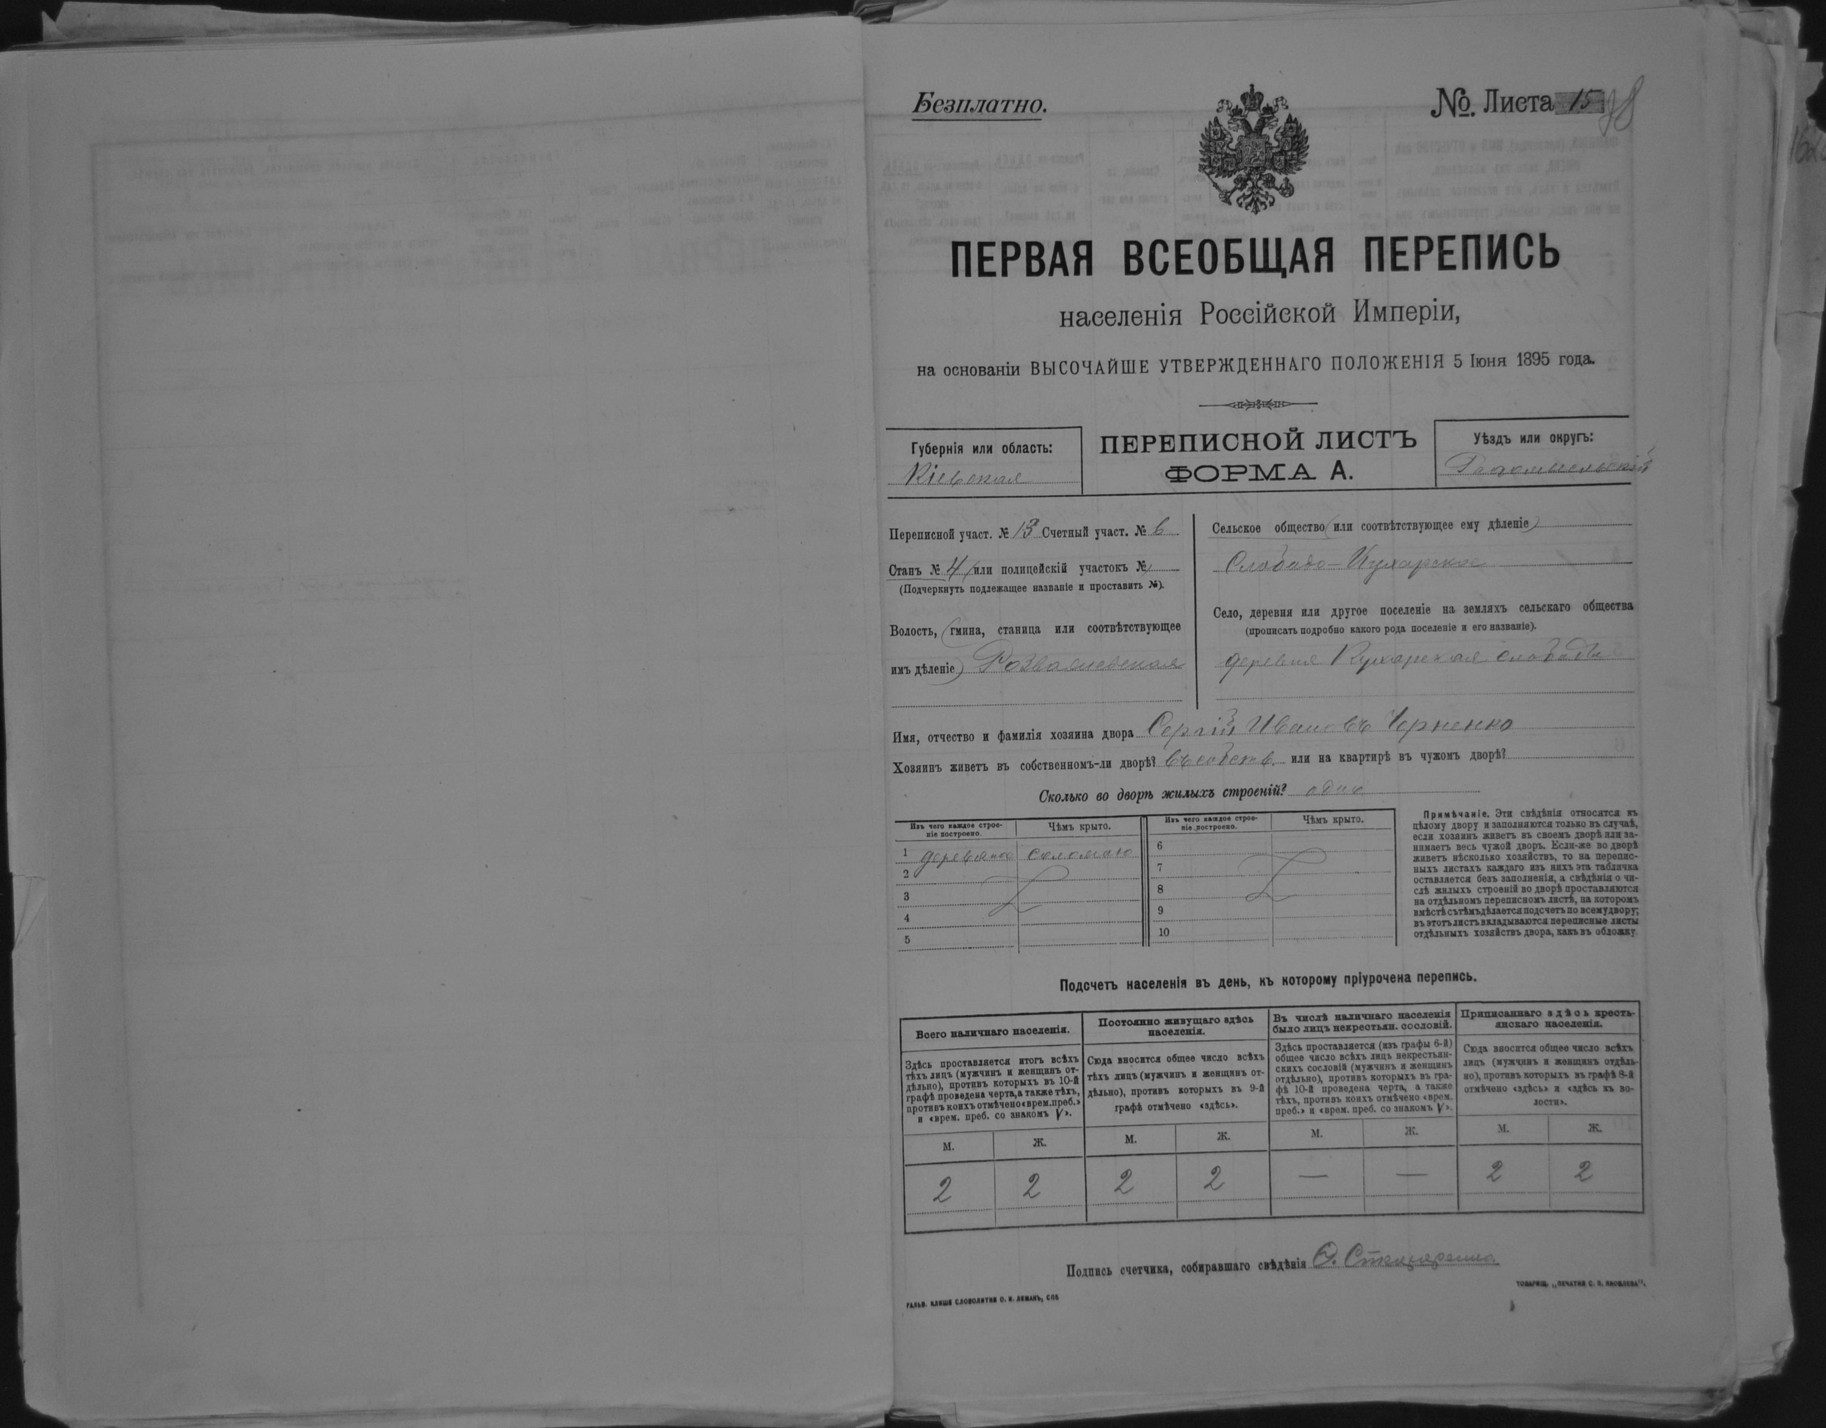 Безплатно.
№. Листа 15
ПЕРВАЯ ВСЕОБЩАЯ ПЕРЕПИСЬ
населенія Россійской Имперіи,
на основаніи ВЫСОЧАЙШЕ УТВЕРЖДЕННАГО ПОЛОЖЕНІЯ 5 Іюня 1895 года.
Губернія или область:
Кіевская
ПЕРЕПИСНОЙ ЛИСТЪ
ФОРМА А.
Уѣздъ или округъ:
Радомысльскій
Переписной участ. № 13 Счетный участ. № 6
Станъ № 4 (или полицейскій участокъ №)
(Подчеркнуть подлежащее названіе и проставить №).
Волость, (гмина, станица или соотвѣтствующее
имъ дѣленіе) Розважевская
Сельское общество (или соотвѣтствующее ему дѣленіе)
Слободо-Кухарское
Село, деревня или другое поселеніе на земляхъ сельскаго общества
(прописать подробно какого рода поселеніе и его названіе).
деревня Кухарская слобода
Имя, отчество и фамилія хозяина двора Сергій Ивановъ Черненко
Хозяинъ живетъ въ собственномъ-ли дворѣ? въ собств. или на квартирѣ въ чужомъ дворѣ?
Сколько во дворѣ жилыхъ строеній? одно
Изъ чего каждое строе-
ніе построено.
Чѣмъ крыто.
Изъ чего каждое строе-
ніе построено.
Чѣмъ крыто.
1 деревяное соломою
2
3
4
5
6
7
8
9
10
Примѣчаніе. Эти свѣдѣнія относятся къ
цѣлому двору и заполняются только въ случаѣ,
если хозяинъ живетъ въ своемъ дворѣ или за-
нимаетъ весь чужой дворъ. Если-же во дворѣ
живетъ нѣсколько хозяйствъ, то на перепис-
ныхъ листахъ каждаго изъ нихъ эта табличка
оставляется безъ заполненія, а свѣдѣнія о чи-
слѣ жилыхъ строеній во дворѣ проставляются
на отдѣльномъ переписномъ листѣ, на которомъ
вмѣстѣ съ тѣмъ дѣлается подсчетъ по всему двору;
въ этотъ листъ вкладываются переписные листы
отдѣльныхъ хозяйствъ двора, какъ въ обложку.
Подсчетъ населенія въ день, къ которому пріурочена перепись.
Всего наличнаго населенія.
Здѣсь проставляется итогъ всѣхъ
тѣхъ лицъ (мужчинъ и женщинъ от-
дѣльно), противъ которыхъ въ 10-й
графѣ проведена черта, а также тѣхъ,
противъ коихъ отмѣчено «врем. преб.»
и «врем. преб. со знакомъ V».
Постоянно живущаго здѣсь
населенія.
Сюда вносится общее число всѣхъ
тѣхъ лицъ (мужчинъ и женщинъ от-
дѣльно), противъ которыхъ въ 9-й
графѣ отмѣчено «здѣсь».
Въ числѣ наличнаго населенія
было лицъ некрестьян. сословій.
Здѣсь проставляется (изъ графы 6-й)
общее число всѣхъ лицъ некрестьян-
скихъ сословій (мужчинъ и женщинъ
отдѣльно), противъ которыхъ въ гра-
фѣ 10-й проведена черта, а также
тѣхъ, противъ коихъ отмѣчено «врем.
преб.» и «врем. преб. со знакомъ V».
Приписаннаго здѣсь кресть-
янскаго населенія.
Сюда вносится общее число всѣхъ
лицъ (мужчинъ и женщинъ отдѣль-
но), противъ которыхъ въ графѣ 8-й
отмѣчено «здѣсь» и «здѣсь въ во-
лости».
М. Ж. М. Ж. М. Ж. М. Ж.
2 2 2 2 — — 2 2
Подпись счетчика, собиравшаго свѣдѣнія
ГАЛЬВ. КЛИШЕ СЛОВОЛИТНИ О. И. ЛЕМАНЪ, СПБ
ТОВАРИЩ. „ПЕЧАТНЯ С. П. ЯКОВЛЕВА".